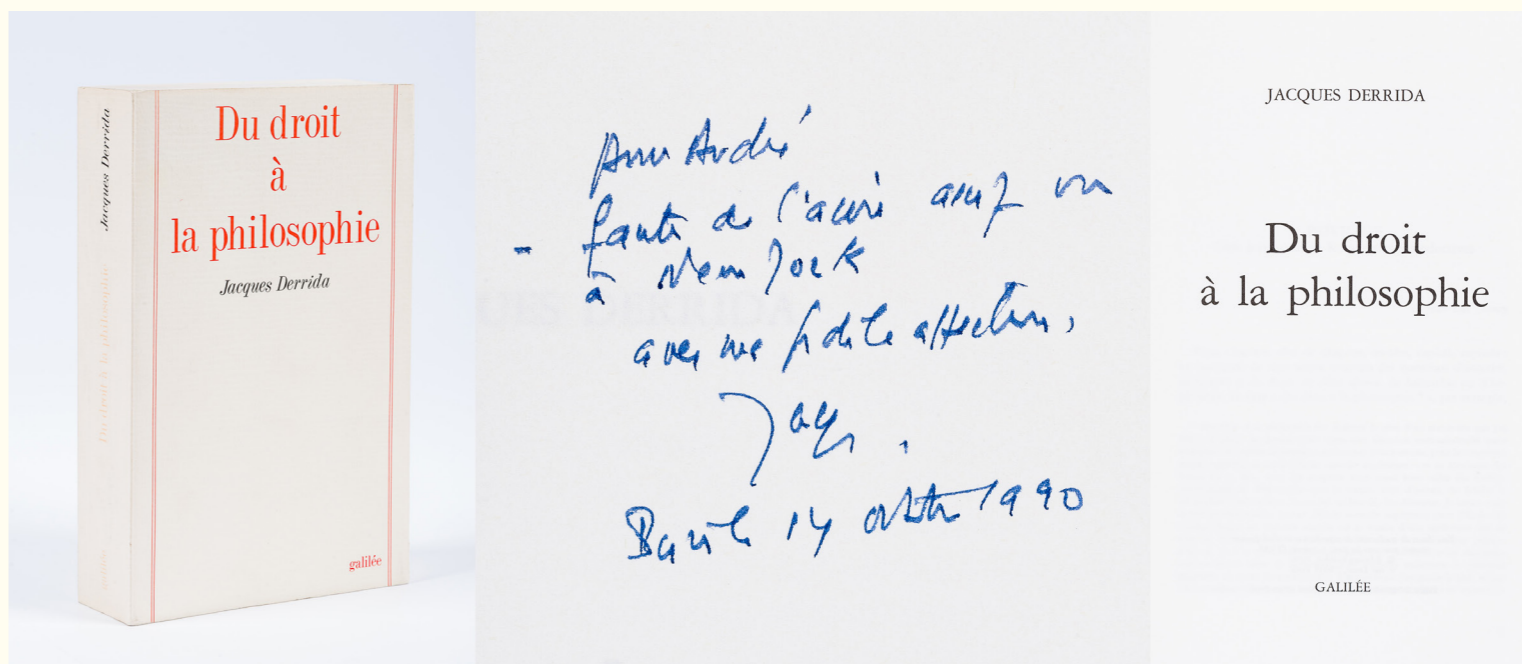 Jacques Derrida
Du droit à la philosophie
galilée
Du droit
à
la philosophie
Jacques Derrida
galilée
André
- faute de l'avoir
à New York
avec ma fidèle affection,
Jacq
14 octobre 1990
JACQUES DERRIDA
JACQUES DERRIDA
Du droit
à la philosophie
GALILÉE